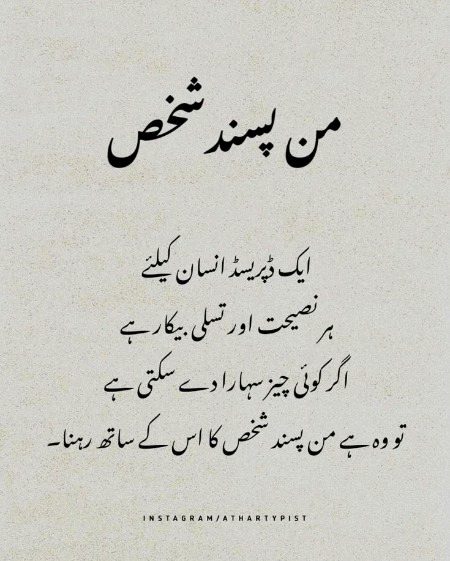 من پسند شخص
ایک ڈپریسڈ انسان کیلئے
ہر نصیحت اور تسلی بیکار ہے
اگر کوئی چیز سہارا دے سکتی ہے
تو وہ ہے من پسند شخص کا اس کے ساتھ رہنا۔
INSTAGRAM/ATHARTYPIST